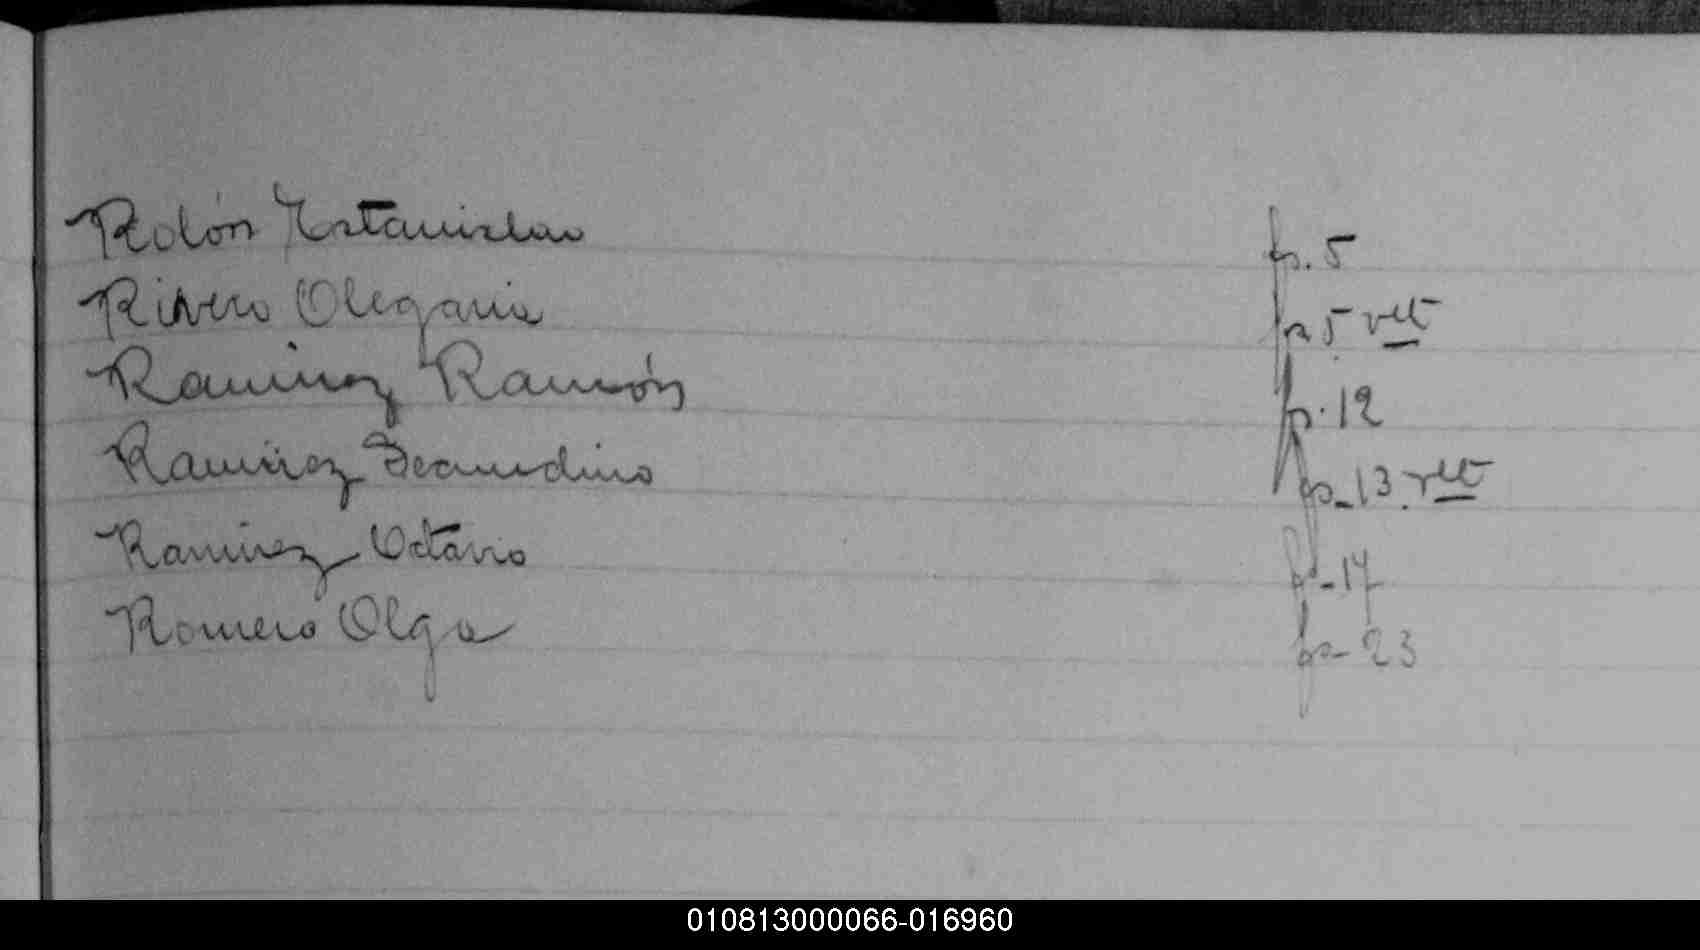 Rolón Estanislao fs. 5
Rivero Olegaria fs 5 vlt
Ramirez Ramón fs. 12
Ramirez Secundino fs - 13. vlt
Ramirez Octavio fs - 14
Romero Olga fs - 23
010813000066-016960